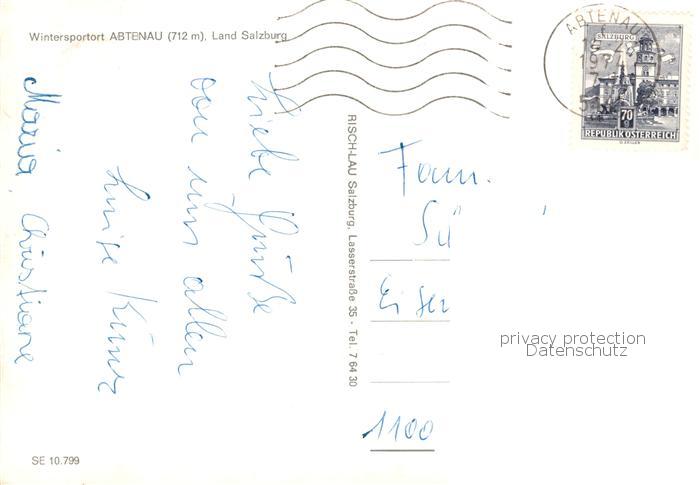 Wintersportort ABTENAU (712 m), Land Salzburg
Liebe Grüße
von uns allen
Luise
Maria Christiane
SE 10.799
RISCH-LAU Salzburg, Lasserstraße 35 - Tel. 7 64 30
ABTENAU
SALZBURG
70
REPUBLIK ÖSTERREICH
Fam.
1100
privacy protection
Datenschutz